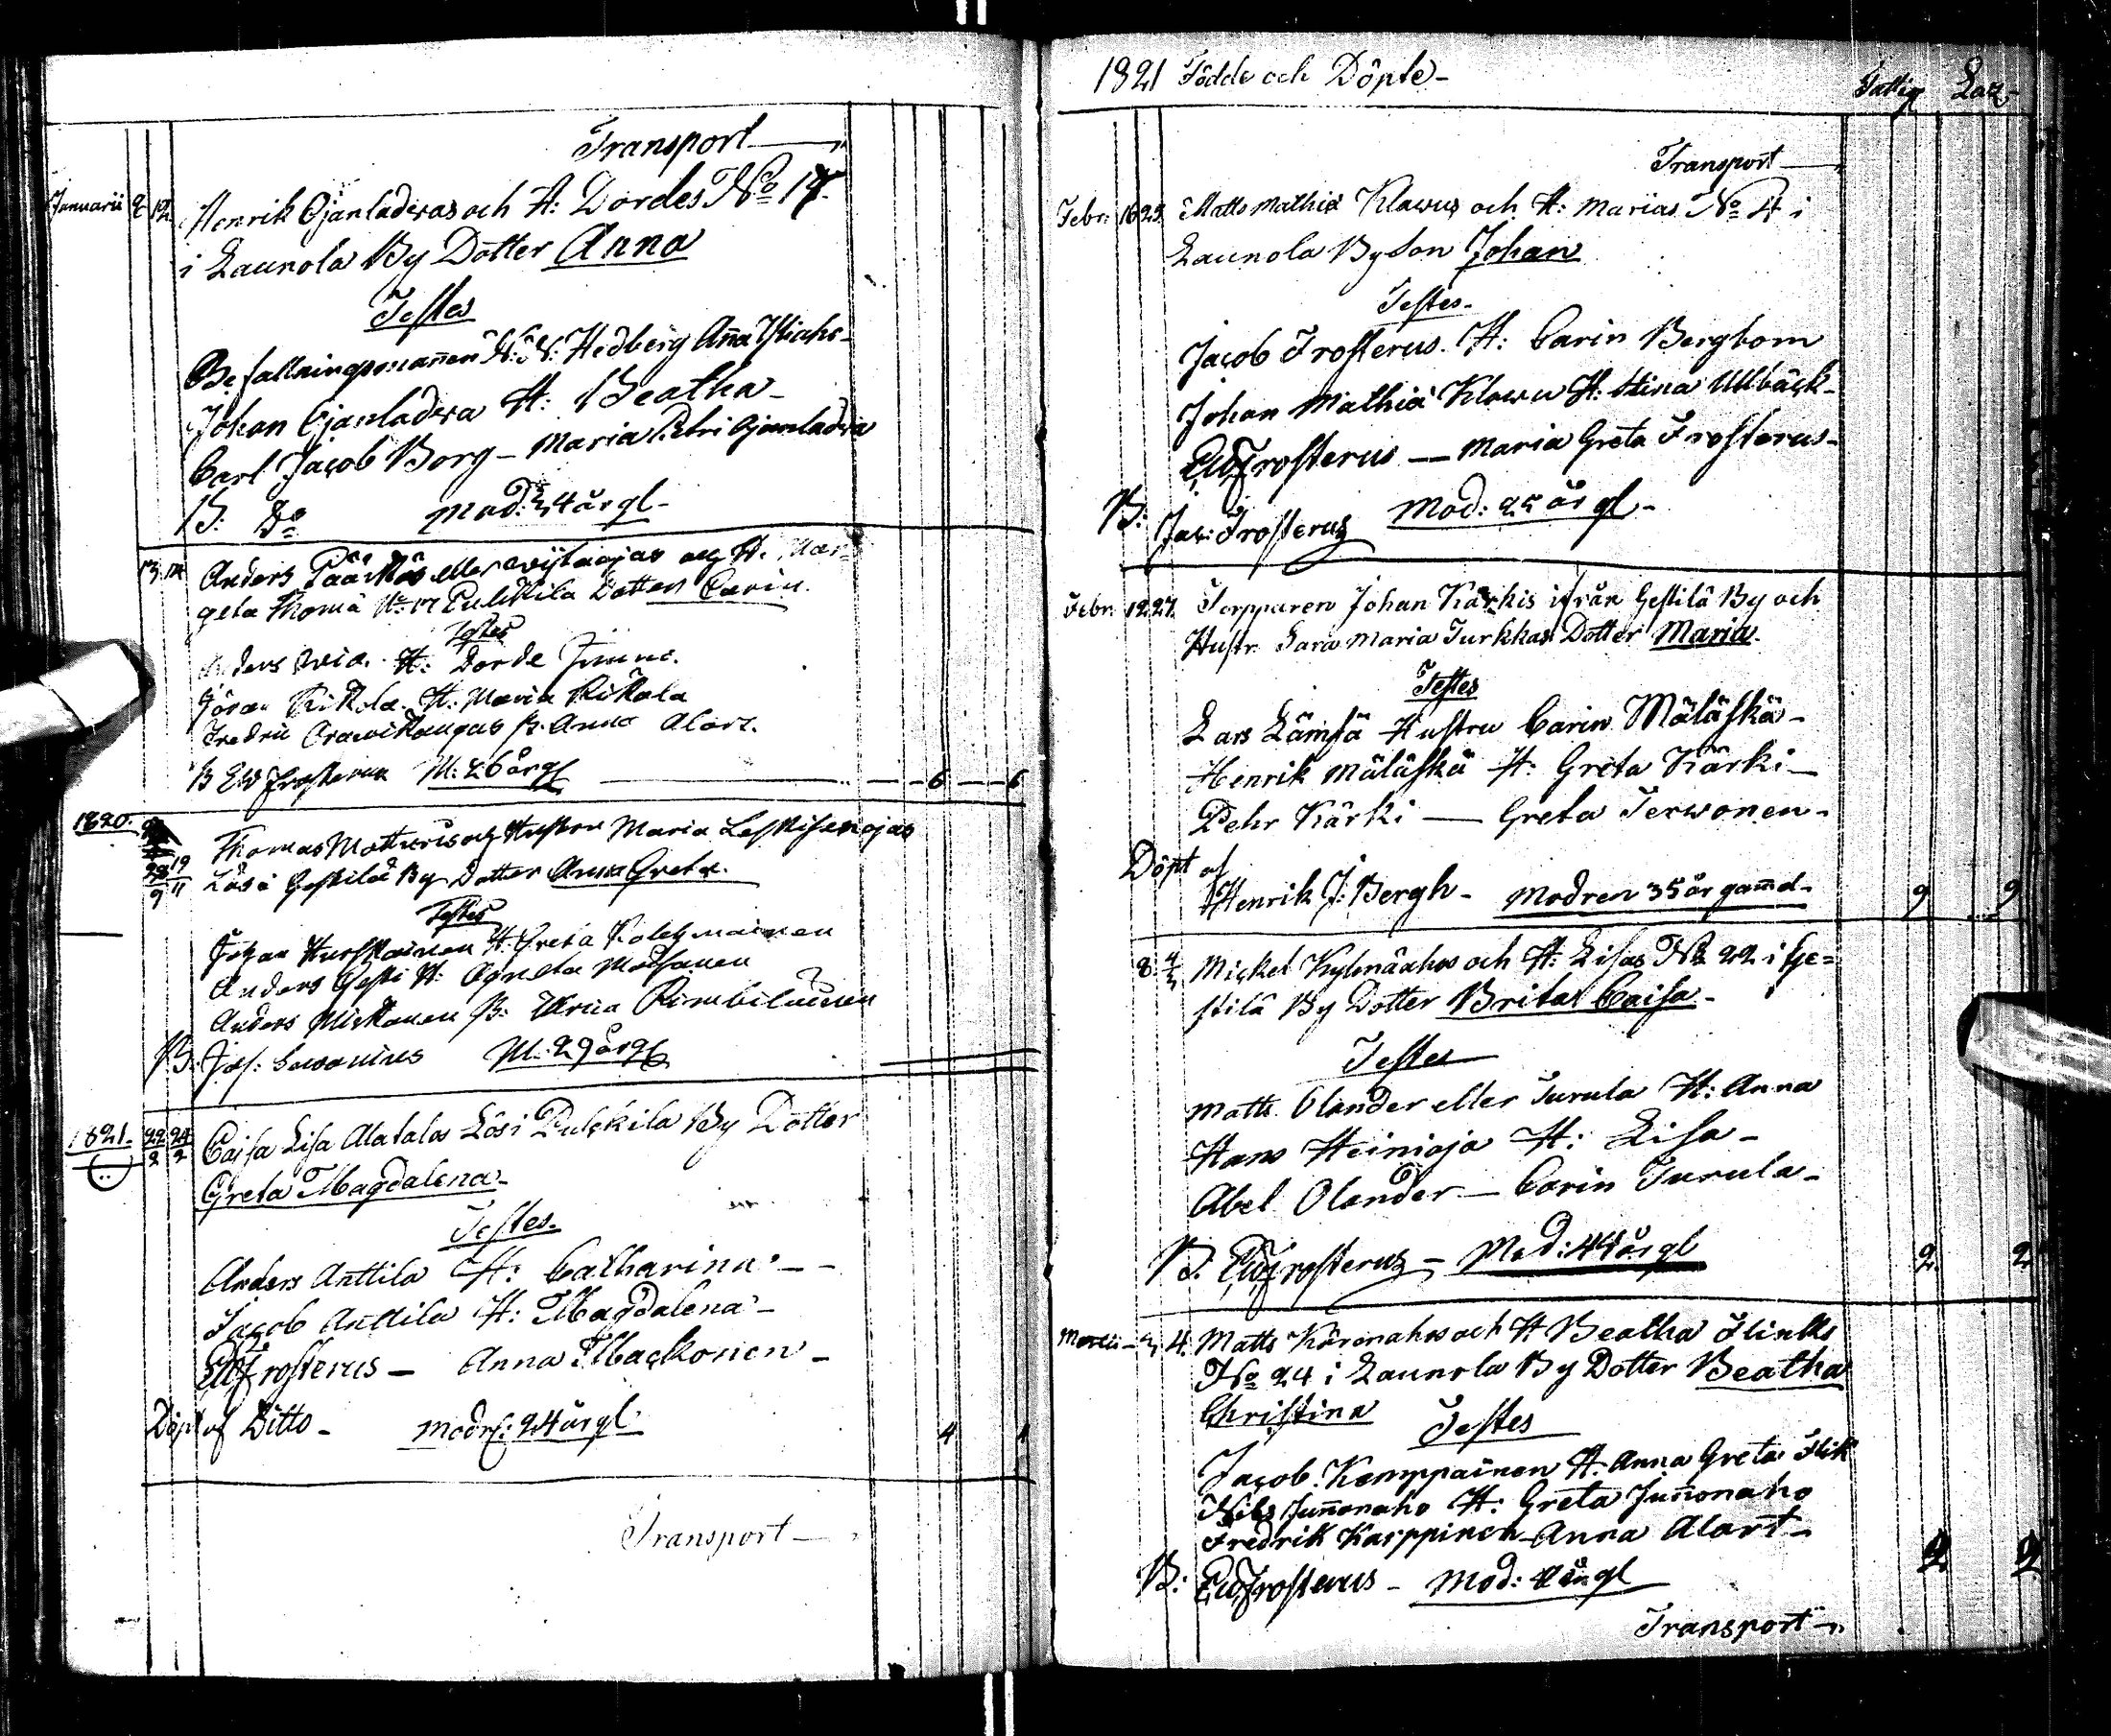 Transport
Januarii 2 12. Henrik Ojanladvas och H: Dordes No 17.
i Launola By Dotter Anna
Testes
Befallningsmannen N: Hedberg Anna
Johan Ojanladwa H: Beatha
Carl Jacob Borg - Maria Petri Ojanladwa
B: Do Mod: 34 år gl-
13 14 Anders eller och H. Mar-
geta Thomä No 17 Pulkkila Dotter Carin.
Testes
Anders H: Dorde
Göran Kikola. H: Maria Kikola
Fredric P. Anna Alart.
B EW Frosterus M: 26 år gl 6 6
1820.
Thomas Matturis och Hustru Maria Leskisenojas
28/9 19/11 Lös i Gestilä By Dotter Anna Greta.
Testes
Johan Hurskainen H: Greta Kolehmainen
Anders Gesti H: Agneta
Anders Miskanen P: Rimbiläinen
B: Jos: Savonius M: 29 år gl
1821. 22/2 24/2 Caisa Lisa Alatalos Lös i Pulckila By Dotter
Greta Magdalena-
Testes.
Anders Anttila H: Catharina -
Jacob Anttila H: Magdalena -
EW Frosterus - Anna Mackonen -
Döpt af Ditto - modr: 24 år gl 4 4
Transport
1821 Födde och Döpte-
Fattig Laz-
Transport
Febr: 16 25. Matts Mathiæ Klawus och H: Marias No 4 i
Launola By Son Johan
Testes-
Jacob Frosterus. H: Carin Bergbom
Johan Mathiæ Klawu H: Stina Ullbäck-
EW Frosterus — Maria Greta Frosterus-
B: Jac: Frosterus Mod: 25 år gl-
Febr: 12 27. Torpparen Johan Kärkis ifrån Gestilä By och
Hustr. Sara Maria Turkkas Dotter Maria.
Testes
Lars Lämsä Hustru Carin Mäläskä-
Henrik Mäläskä H: Greta Kärki-
Pehr Kärki — Greta Terwonen-
Döpt af
Henrik J: Bergh- Modren 35 år gammal- 9 9
8 4/3 Mickel Kylmäahos och H: Lisas No 22 i Ge=
stilä By Dotter Brita Caisa-
Testes
Matts Olander eller Turula H: Anna
Hans Heinioja H: Lisa-
Abel Olander — Carin Turula-
B. EW Frosterus - Mod: 44 år gl 2 2
Martii - 3 4 Matts Kärenahos och H Beatha Flinks
No 24 i Launola By Dotter Beatha
Christina
Testes
Jacob Kemppainen H. Anna Greta Flik
Nils Junnonaho H: Greta Junnonaho
Fredrik Karppinen - Anna Alart-
B: EW Frosterus - Mod: år gl 2 2
Transport